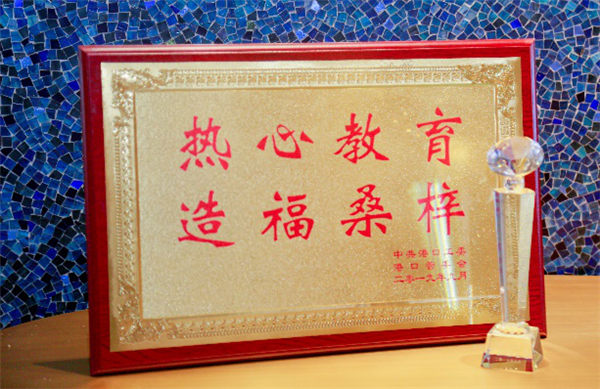 热心教育
造福桑梓
中共港口工委
港口管委会
二零一九年九月